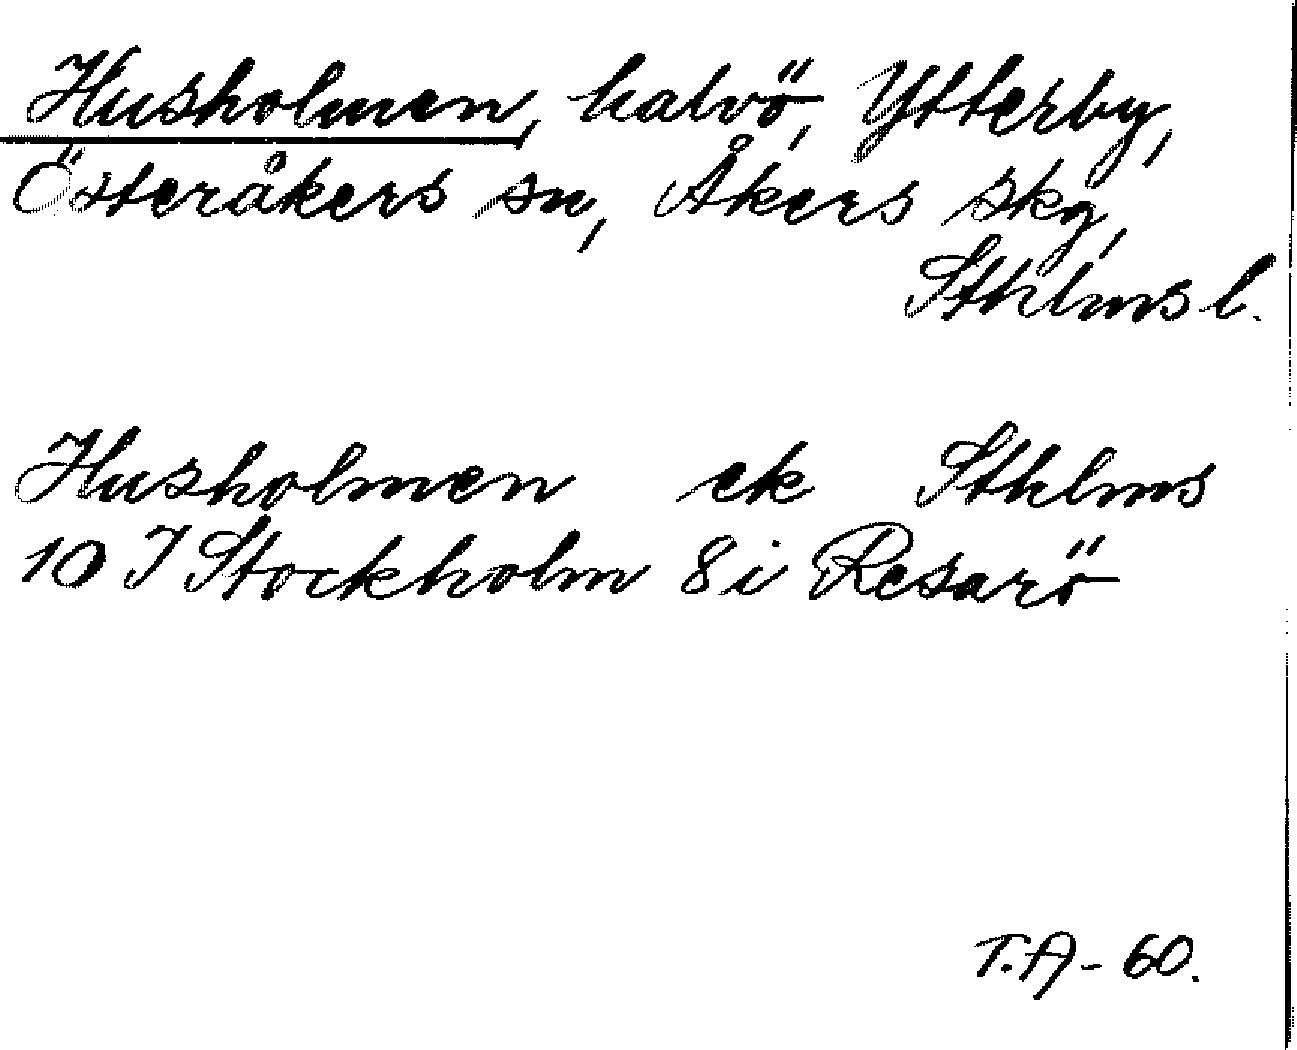 Husholmen, halvö, Ytterby,
Österåkers sn, Åkers skg,
Sthlms l.
Husholmen ek Sthlms
10 I Stockholm 8 i Resarö
T.A - 60.